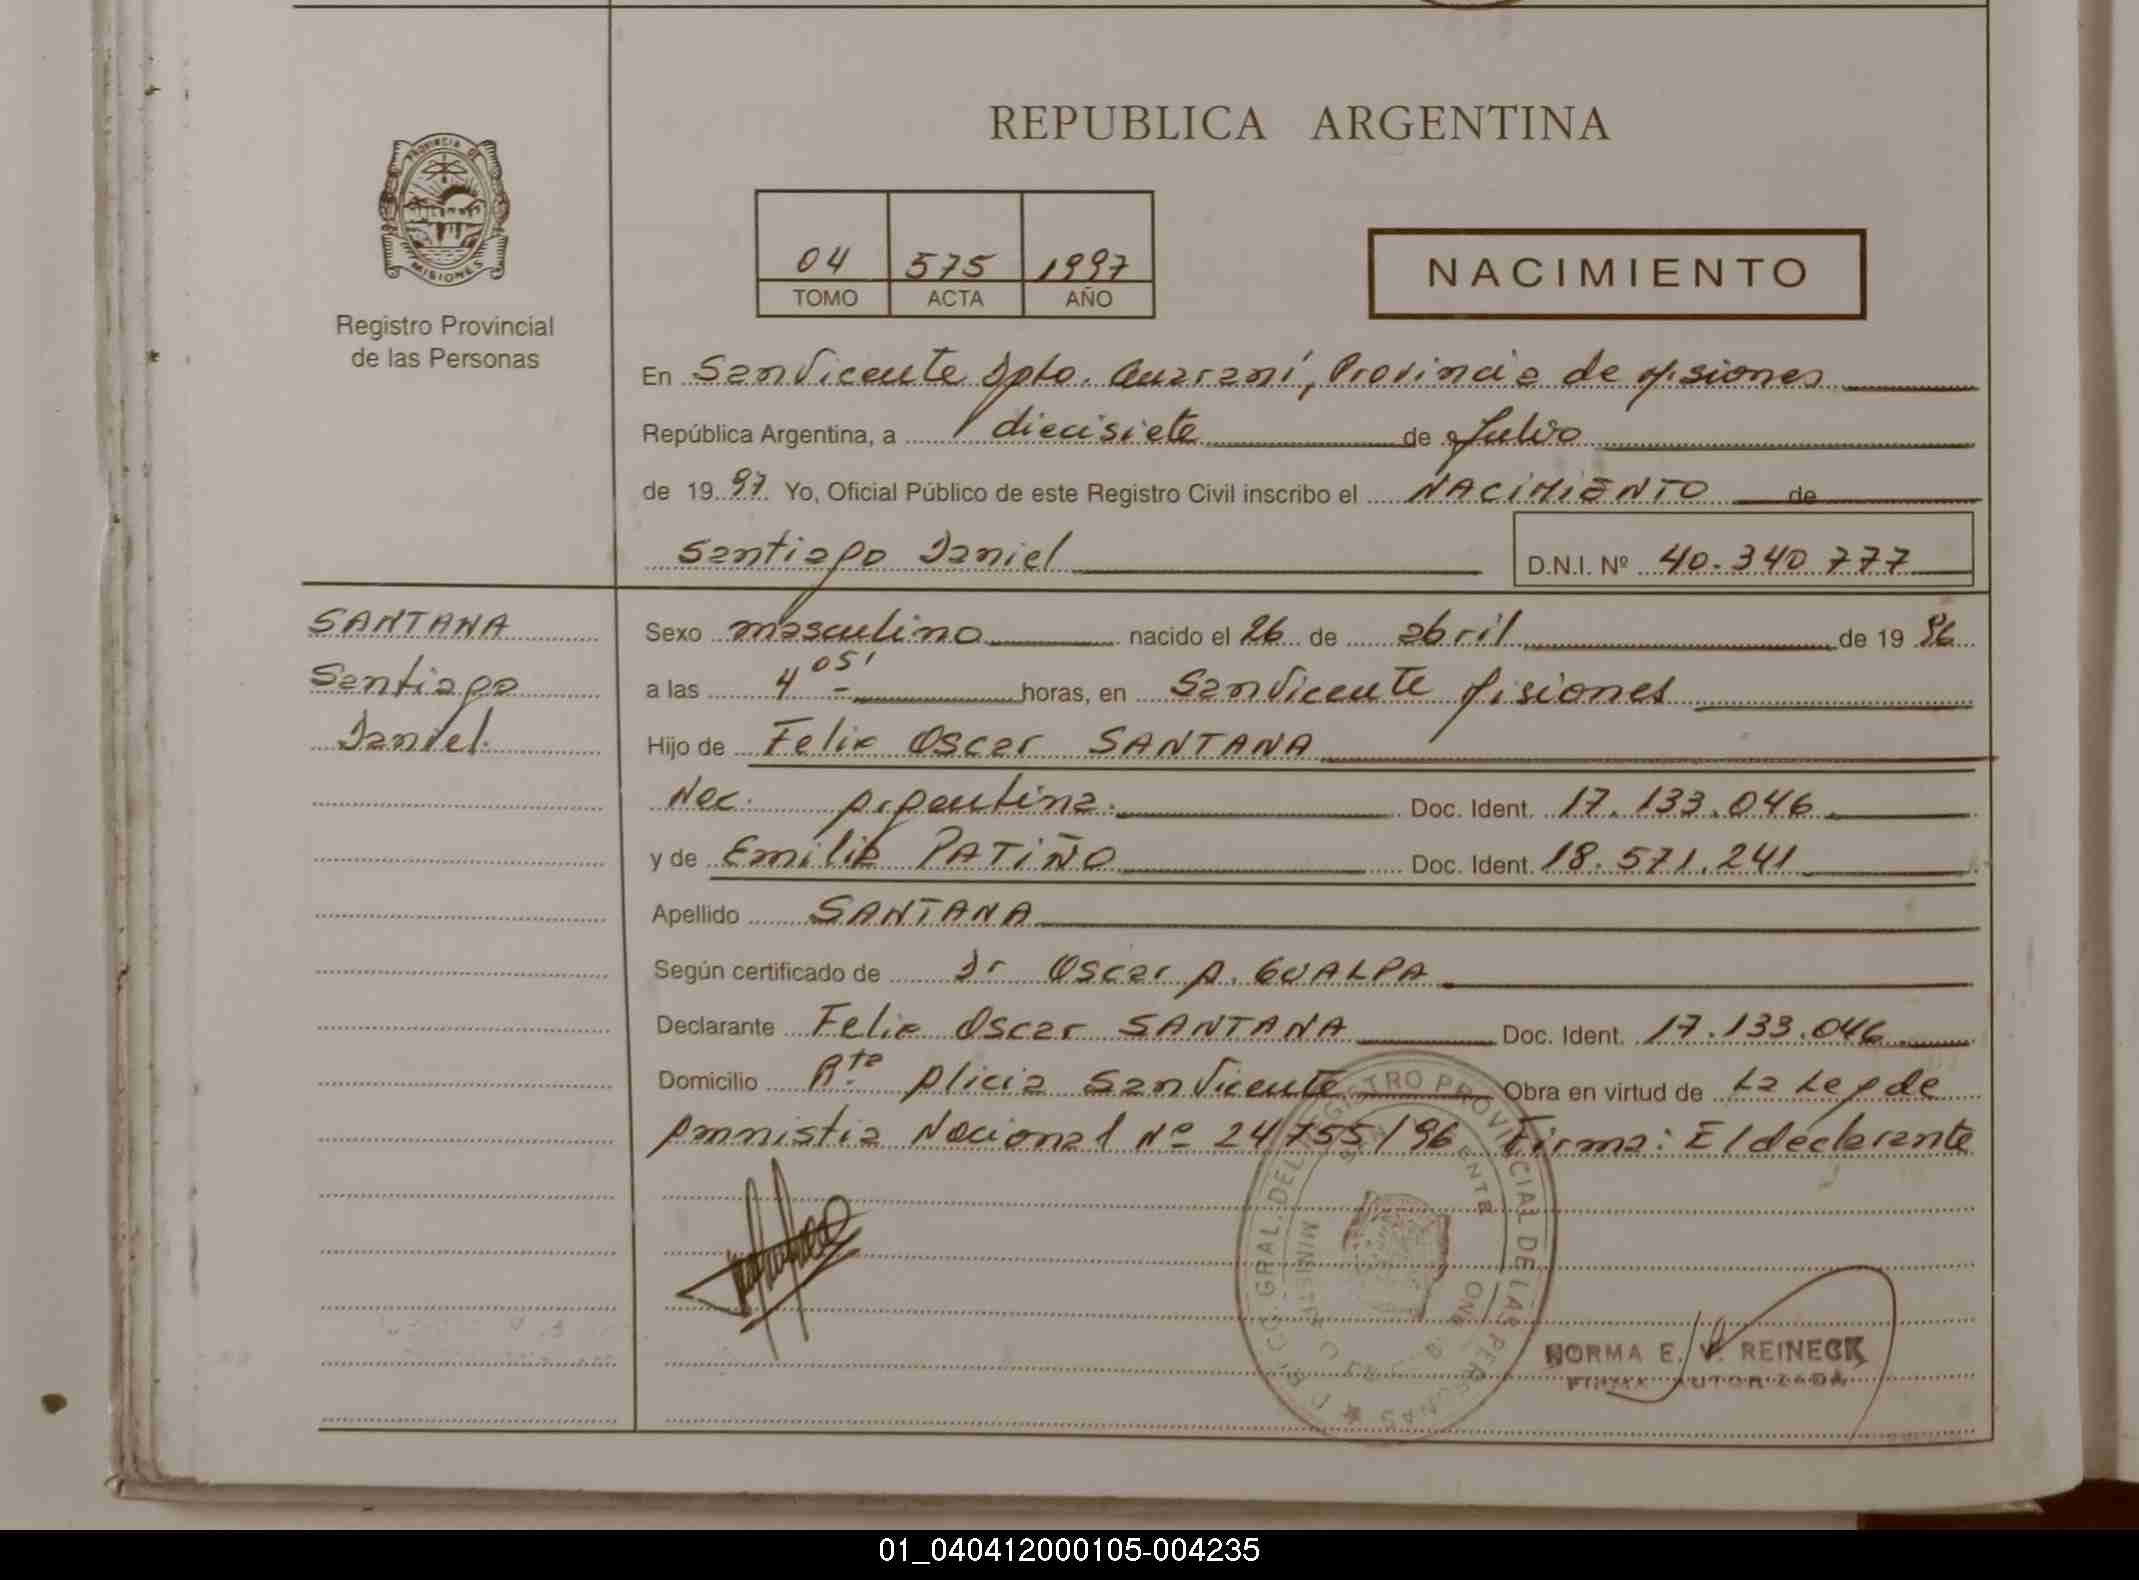 REPUBLICA ARGENTINA
PROVINCIA DE
MISIONES
Registro Provincial
de las Personas
04 575 1997
TOMO ACTA AÑO
NACIMIENTO
En San Vicente Dpto. Guaraní, Provincia de Misiones
República Argentina, a diecisiete de Julio
de 19 97 Yo, Oficial Público de este Registro Civil inscribo el NACIMIENTO de
Santiago Daniel D.N.I. Nº 40.340 777
SANTANA
Santiago
Daniel.
Sexo masculino nacido el 26 de abril de 19 96
a las 4 05' horas, en San Vicente Misiones
Hijo de Felix Oscar SANTANA
Nac. Argentina. Doc. Ident. 17.133.046
y de Emilia PATIÑO Doc. Ident. 18.571.241
Apellido SANTANA
Según certificado de Dr Oscar A. GUALPA
Declarante Felix Oscar SANTANA Doc. Ident. 17.133.046
Domicilio Rta Alicia San Vicente Obra en virtud de La Ley de
Amnistia Nacional Nº 24755/96 Firma: El declarante
GRAL. DEL REGISTRO PROVINCIAL DE LAS PERSONAS
NORMA E. V. REINECK
FIRMA AUTORIZADA
01_040412000105-004235